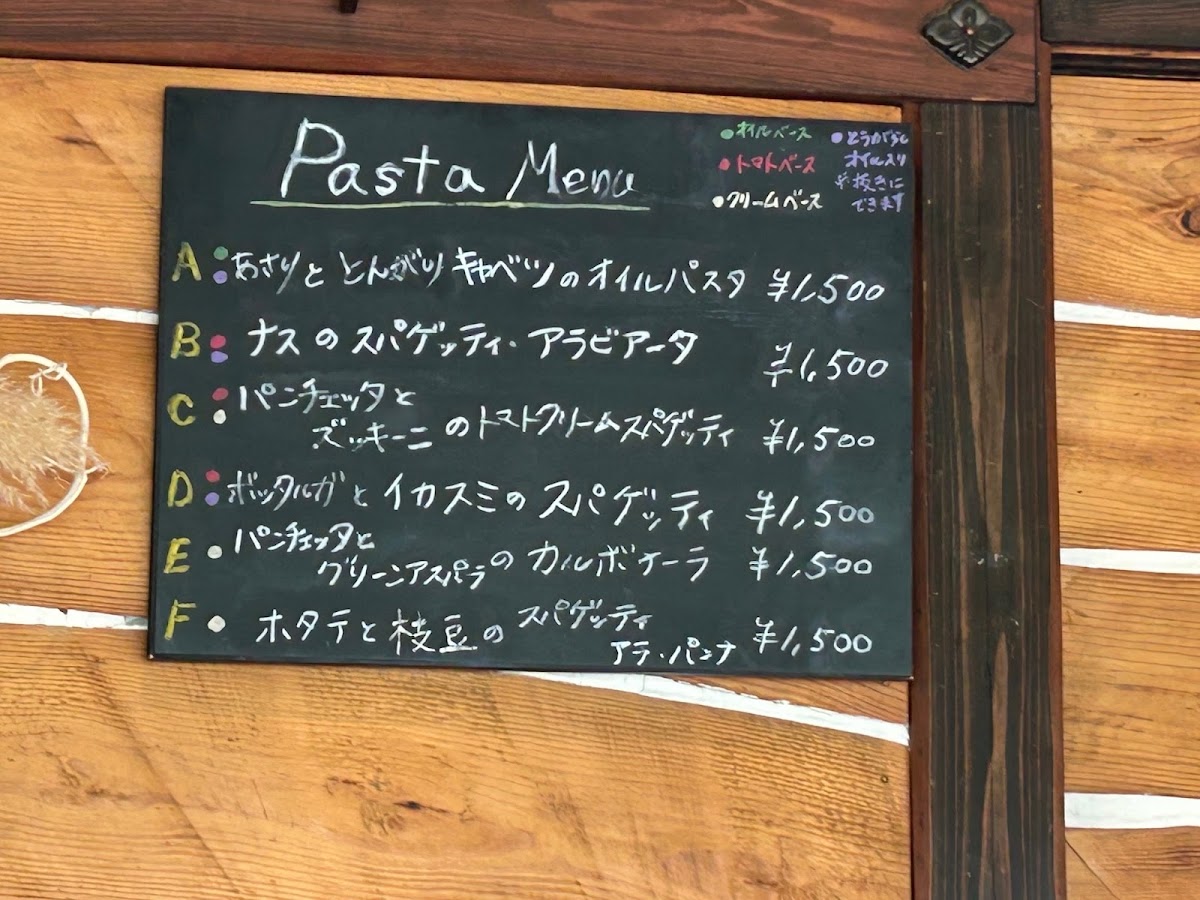 Pasta Menu
●オイルベース
●トマトベース
●クリームベース
●とうがらし
オイル入り
※抜きに
できます
A ●●あさりと とんがりキャベツのオイルパスタ ¥1,500
B ●●ナスのスパゲッティ・アラビアータ ¥1,500
C ●●パンチェッタと
ズッキーニのトマトクリームスパゲッティ ¥1,500
D ●●ボッタルガとイカスミのスパゲッティ ¥1,500
E ●パンチェッタと
グリーンアスパラのカルボナーラ ¥1,500
F ●ホタテと枝豆のスパゲッティ
アラ・パンナ ¥1,500